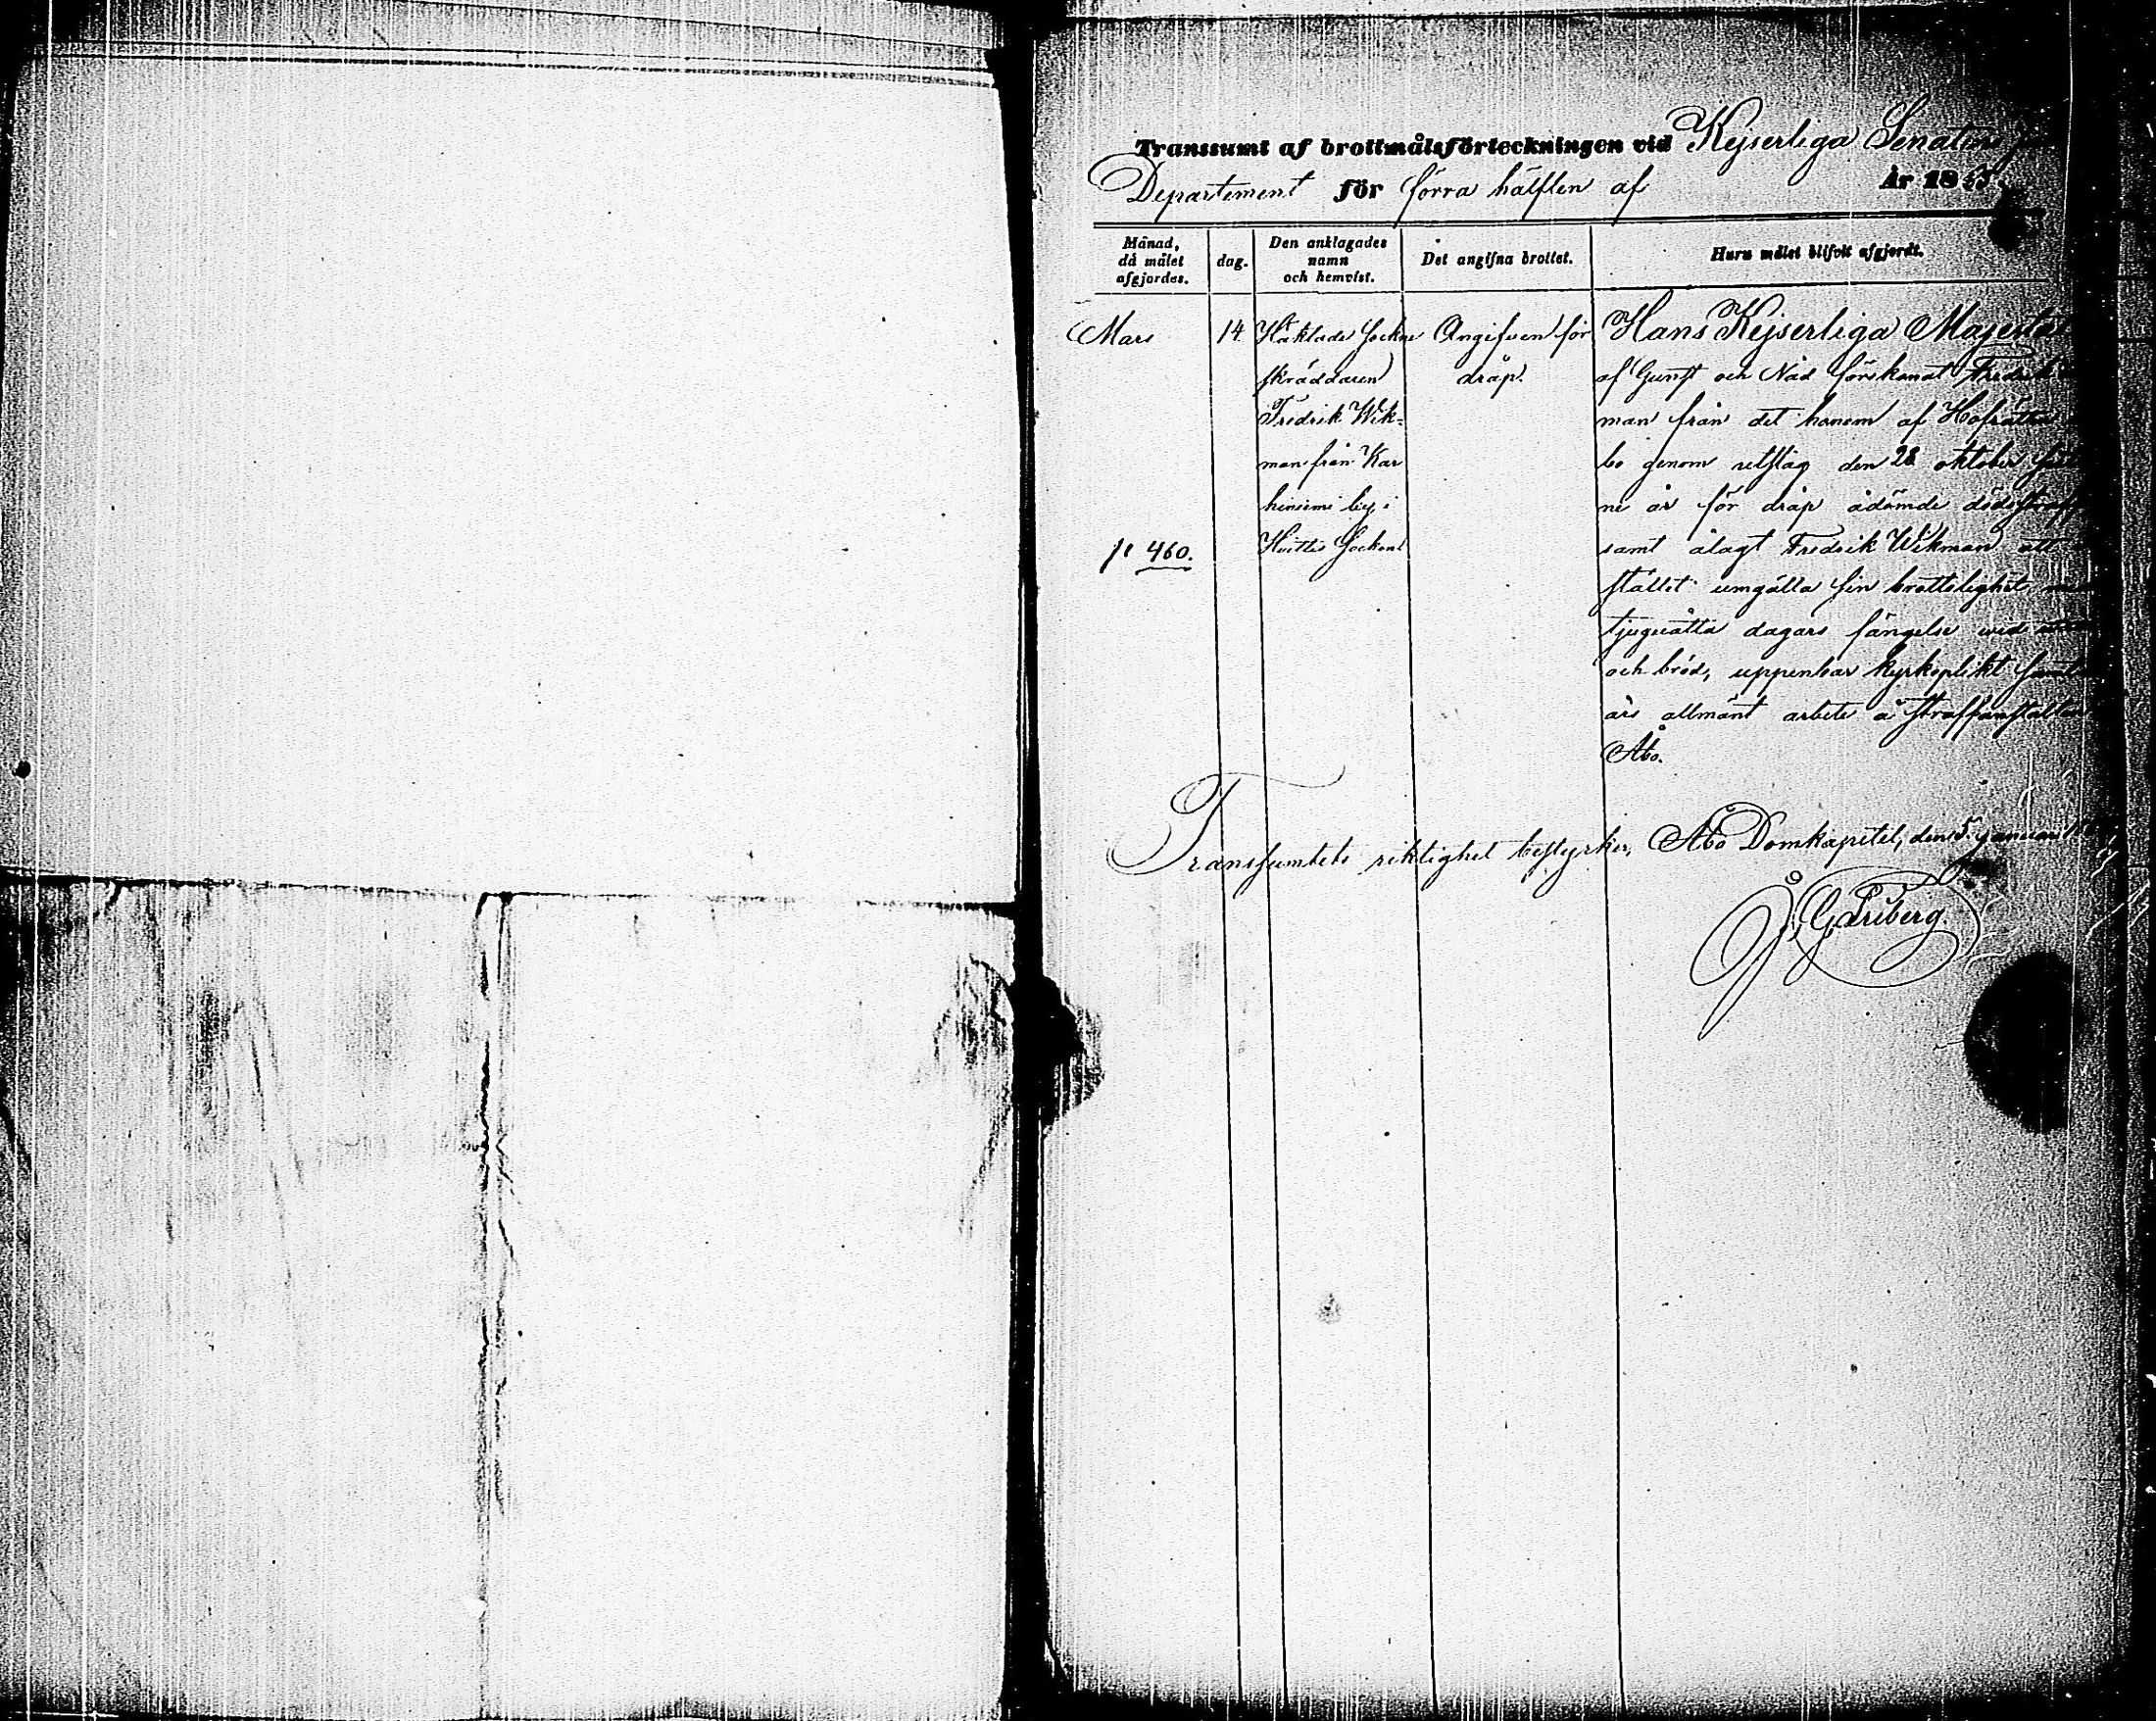 Transsumt af brottmålsförteckningen vid Kejserliga Senatens
Departement för förra hälften af År 18
Månad, då målet afgjordes.
dag.
Den anklagades namn och hemvist.
Det angifna brottet.
Huru målet blifvit afgjordt.
Mars
14.
Häktade Socken
skräddaren
Fredrik Wik-
man från Kar
hiniemi by i
Huittis Socken
p 460.
Angifven för
dråp.
Hans Kejserliga Majestät
af Gunst och Nåd förskonat Fredrik
man från det honom af Hofrätten
bo genom utslag den 28 oktober
ne år för dråp ådömde dödsstraff
samt ålagt Fredrik Wikman att
stället umgälla sin brottslighet
tjuguåtta dagars fängelse wid
och bröd, uppenbar kyrkoplikt samt
års allmänt arbete å straffanstalten
Åbo.
Transsumtets riktighet bestyrker, Åbo Domkapitel, den 5 januari
G. Friberg.